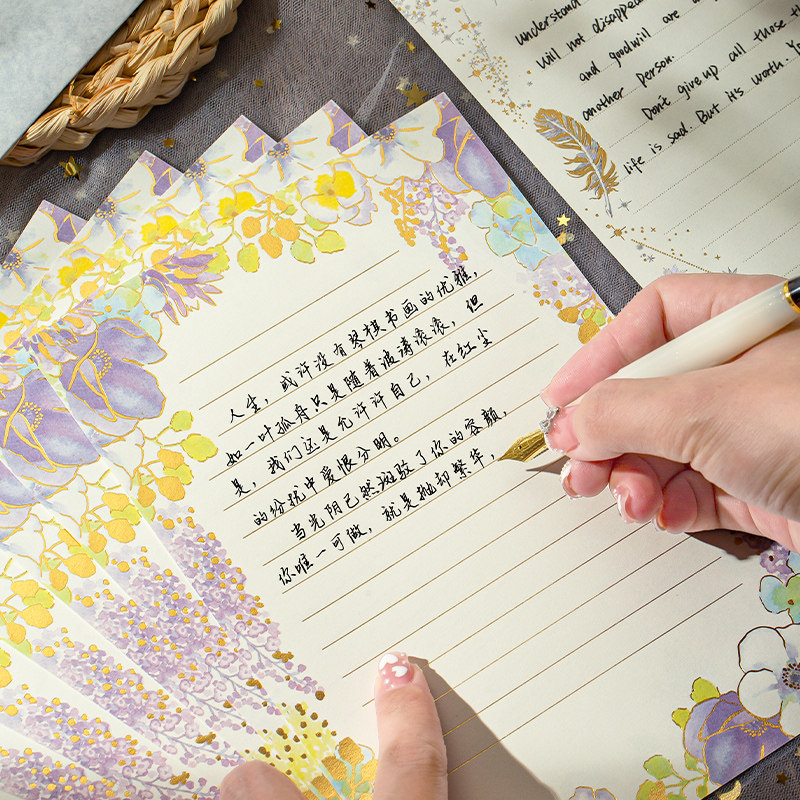 人生,或许没有琴棋书画的优雅,
如一叶孤舟只是随着波涛滚滚,但
是,我们还是允许许自己,在红尘
的纷扰中爱恨分明。
当光阴已然斑驳了你的容颜,
你唯一可做,就是抛却繁华,
understand
will not disappea
and goodwill are a
another person.
Don't give up all those th
life is sad. But its worth. Y